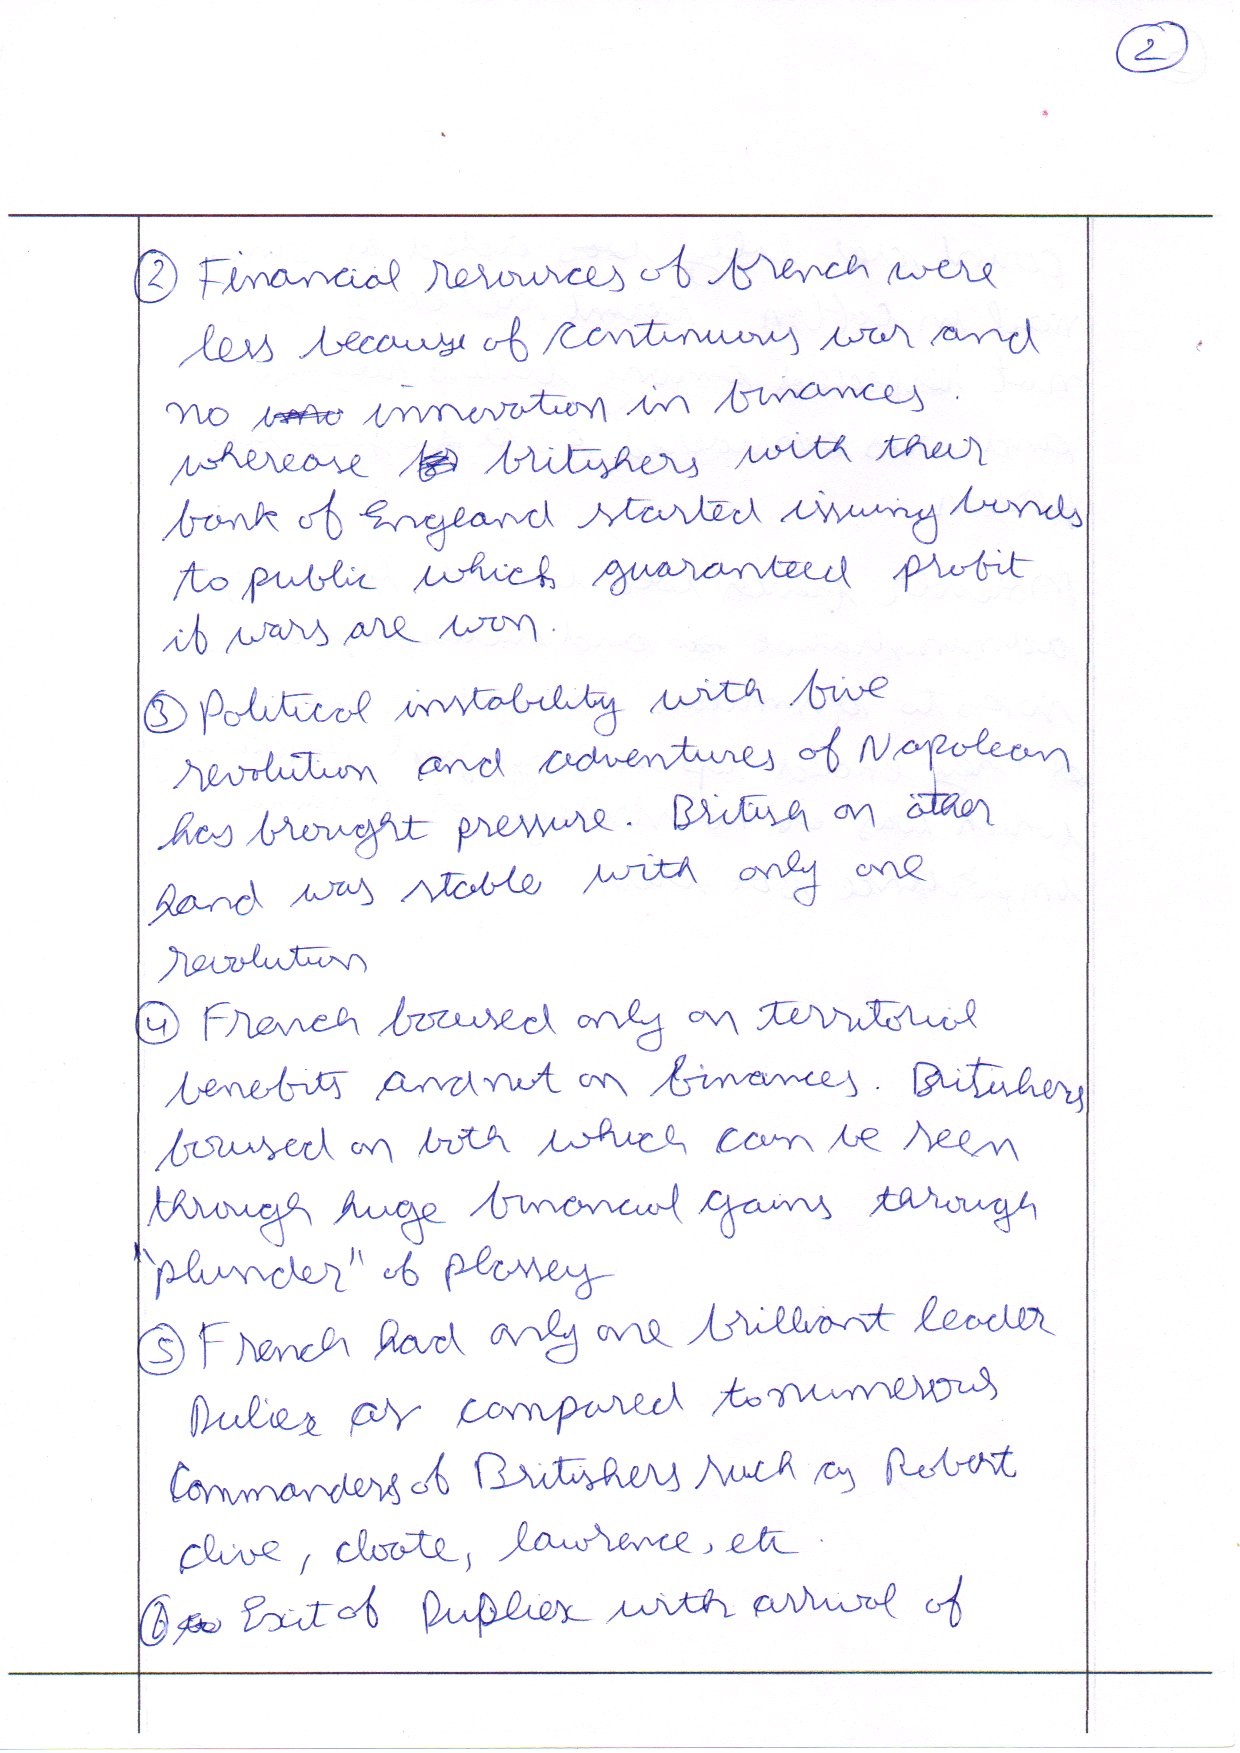 2
② Financial resources of french were
less because of continuous war and
no innovation in finances.
wherease britishers with their
bank of England started issuing bonds
to public which guaranteed profit
if wars are won.
③ Political instability with five
revolution and adventures of Napolean
has brought pressure. British on other
hand was stable with only one
revolution
④ French focused only on territorial
benefits and not on finances. Britishers
focused on both which can be seen
through huge financial gains through
"plunder" of plassey
⑤ French had only one brilliant leader
Duliex as compared to numerous
Commanders of Britishers such as Robert
clive, cloote, lawrence, etc.
⑥ Exit of Dupliex with arrival of